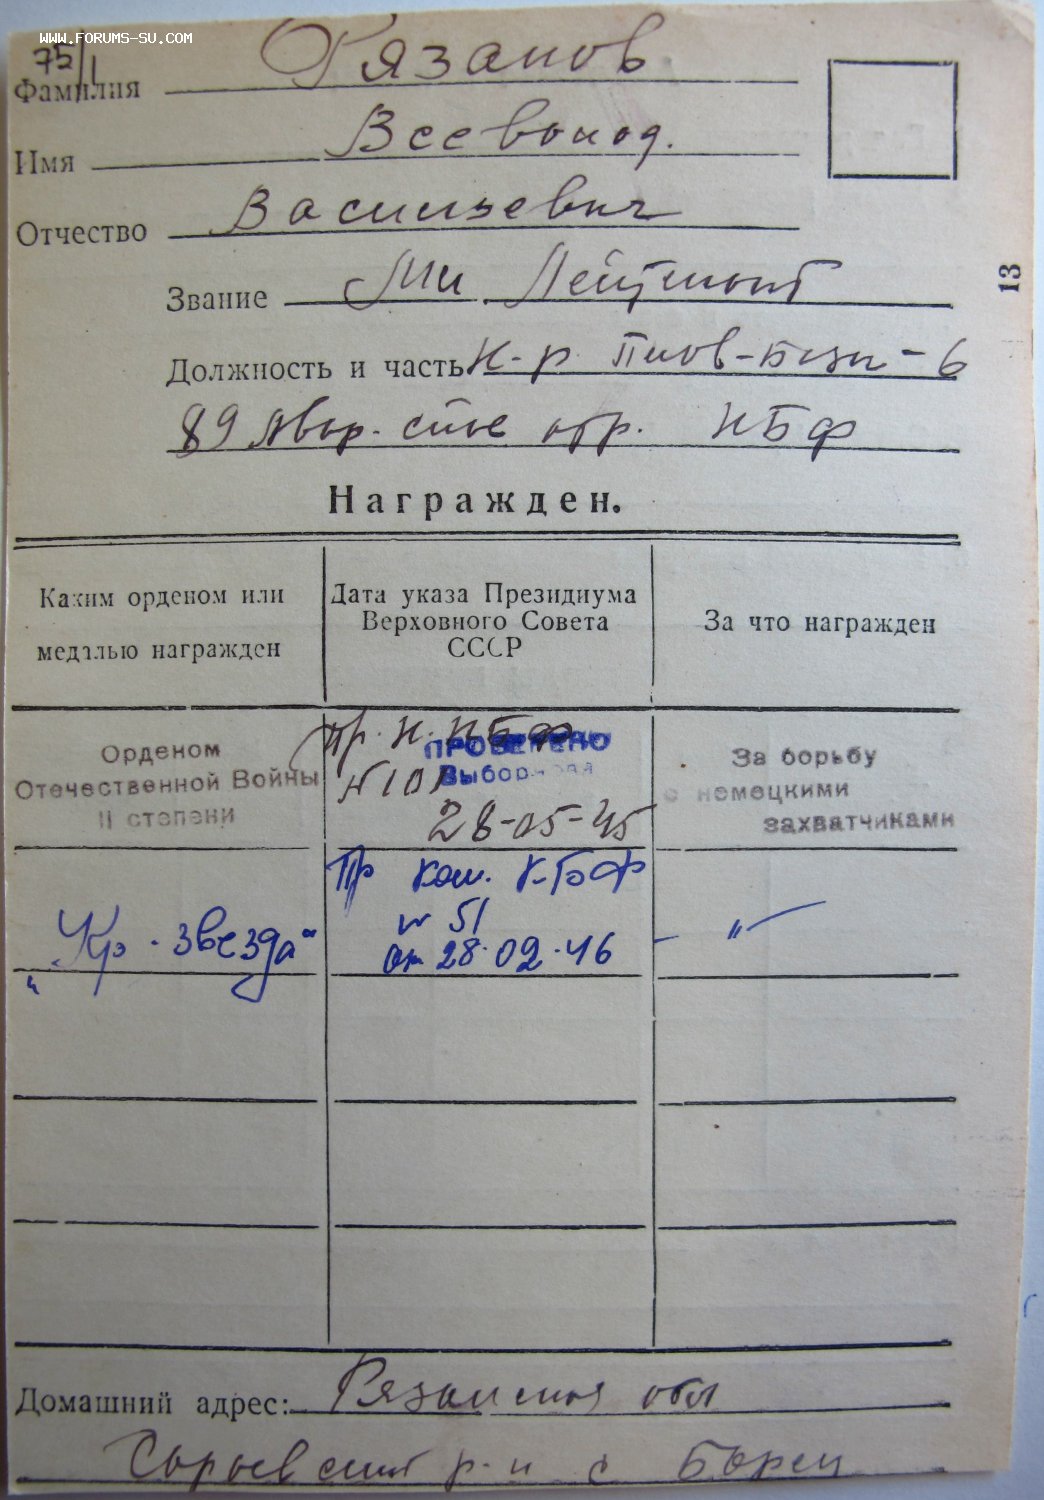 WWW.FORUMS-SU.COM
75/1
Фамилия Рязанов
Имя Всеволод.
Отчество Васильевич
13
Звание Мл Лейтенант
Должность и часть К-р Плов-базы-6
89 Авар. спас отр. КБФ
Награжден.
Каким орденом или медалью награжден
Дата указа Президиума Верховного Совета СССР
За что награжден
Орденом Отечественной Войны II степени
Пр. К. КБФ
N 101
28-05-45
ПРОВЕРЕНО
За борьбу с немецкими захватчиками
„Кр. звезда“
Пр ком. КБФ
№ 51
от 28.02.46
- " -
Домашний адрес: Рязанская обл
Сараевский р-н с Борец